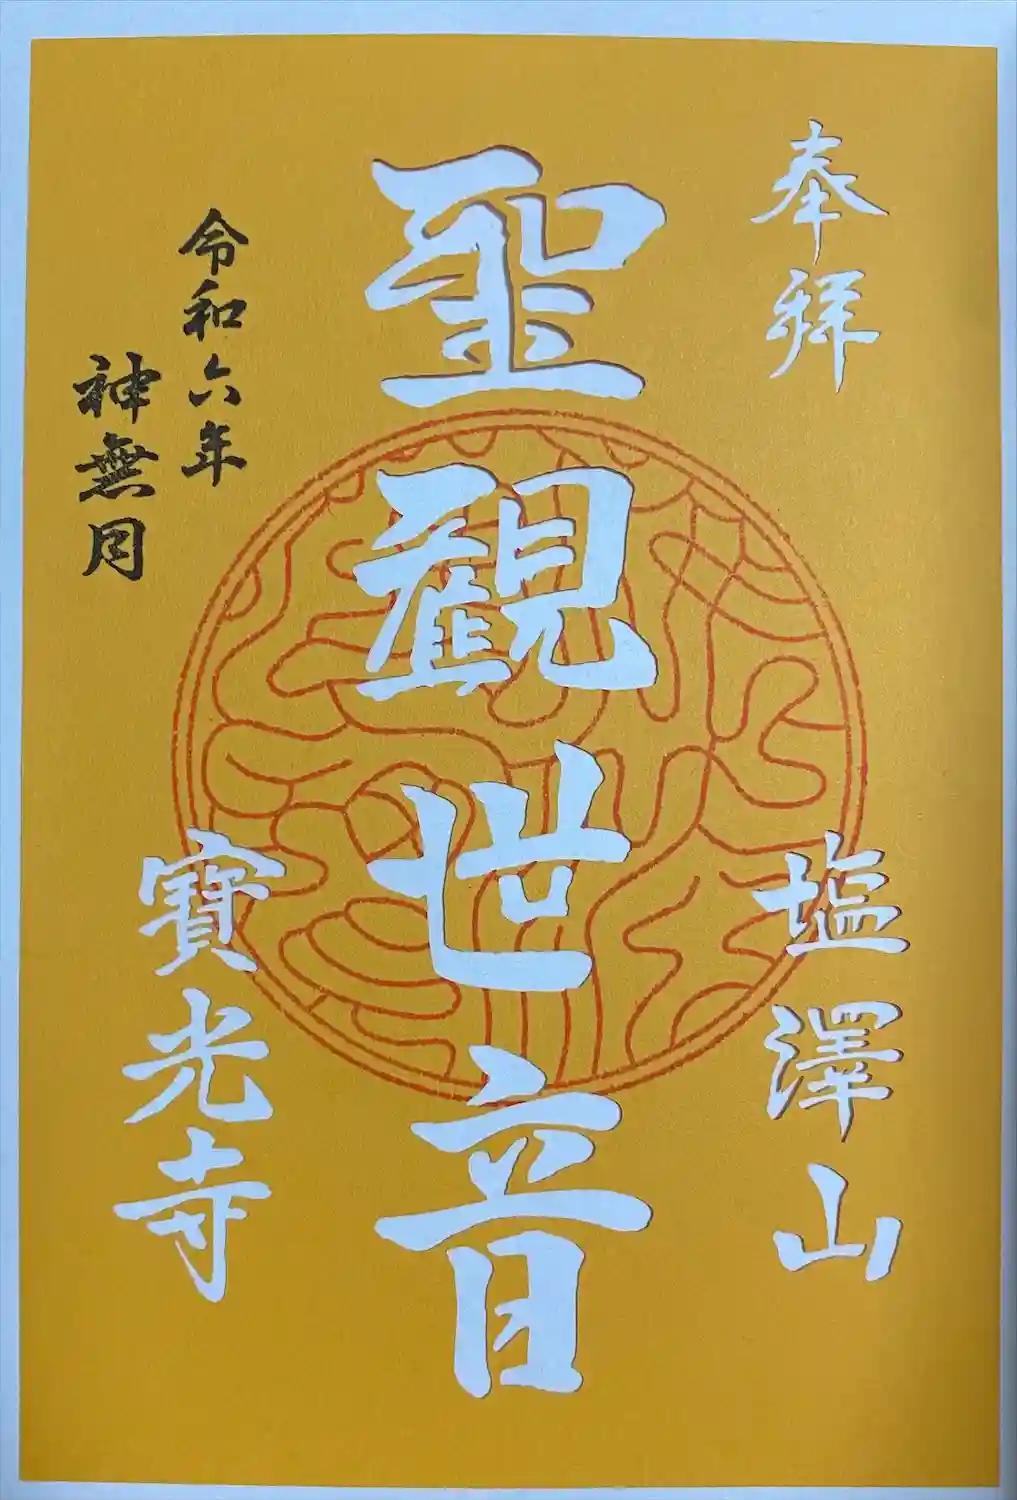 奉拝
塩澤山
聖觀世音
令和六年
神無月
寶光寺